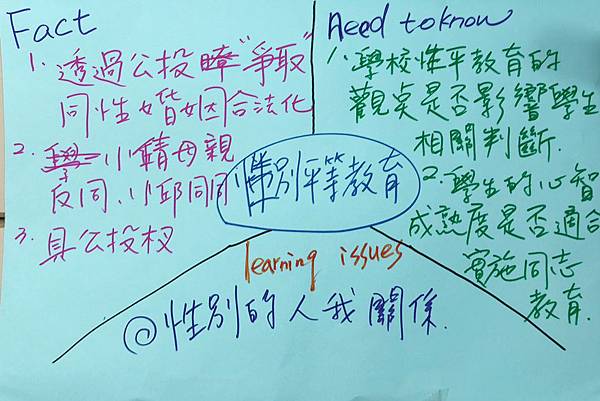 Fact
1. 透過公投瞭"爭取"
同性婚姻合法化
2. 小精母親
反同、小邱同同
3. 具公投权
Need to know
1. 學校性平教育的
觀点是否影響學生
相關判斷.
2. 學生的心智
成熟度是否適合
實施同志
教育.
性別平等教育
learning issues
@性別的人我關係.